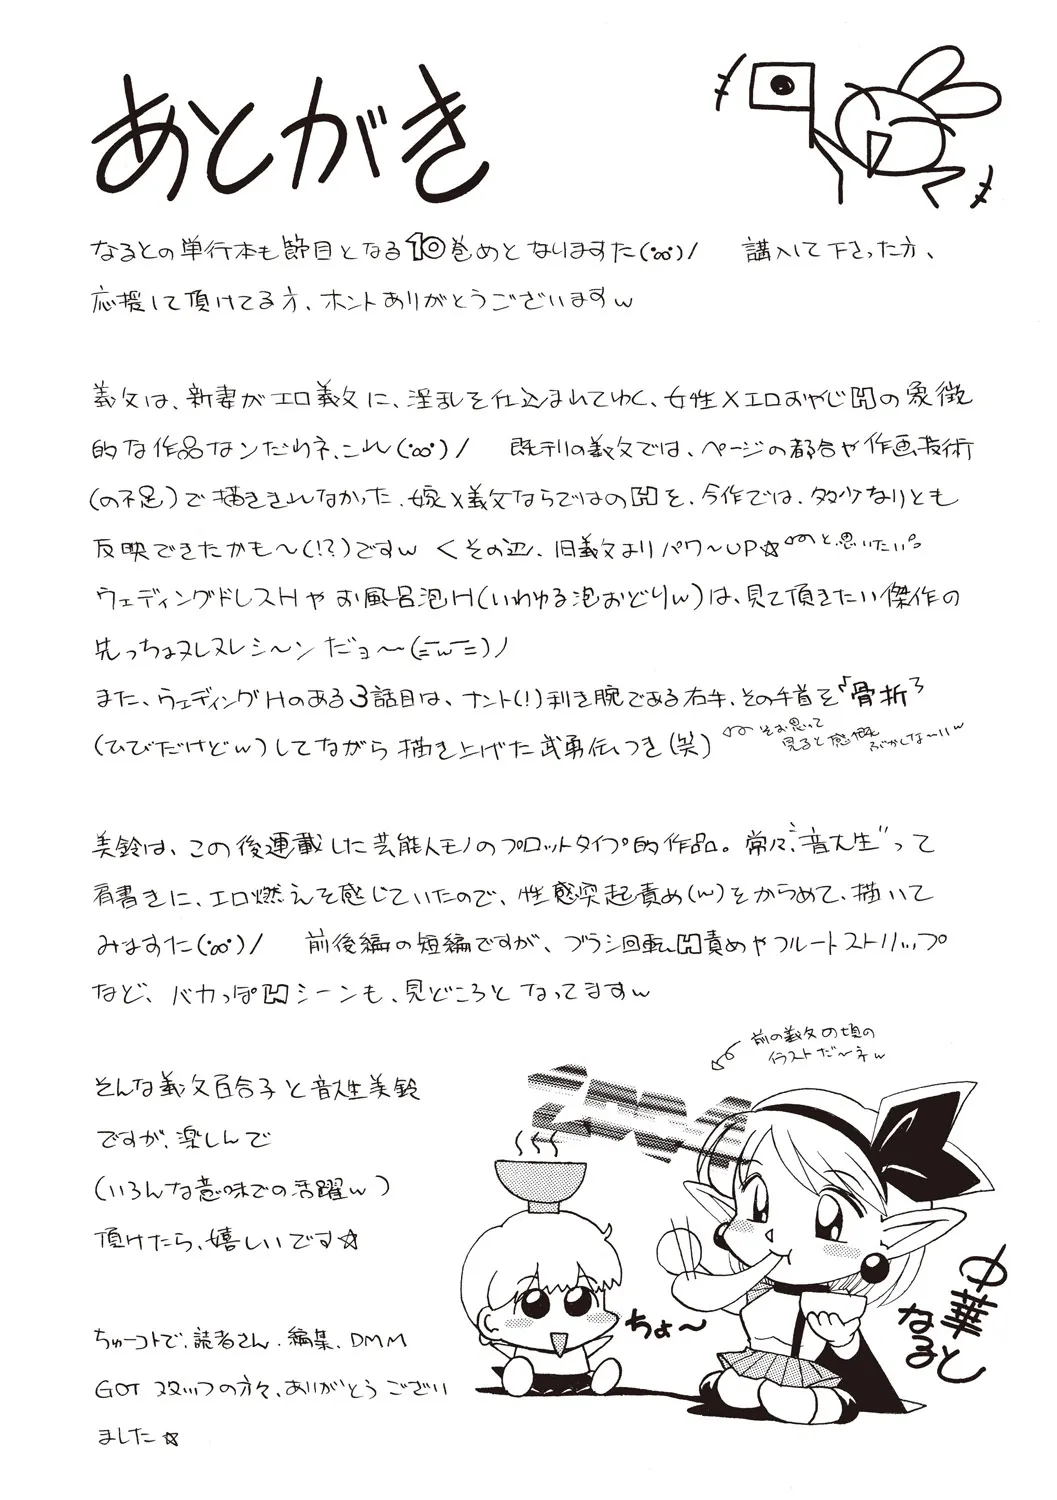 あとがき
なるとの単行本も節目となる10巻めとなりますた(°∞°)/　講入して下さった方、
応援して頂けてる方、ホントありがとうございますw
義父は、新妻がエロ義父に、淫乱を仕込まれてゆく、女性×エロおやじHの象徴
的な作品なンだわネ、これ(°∞°)/　既刊の義父では、ページの都合や作画技術
(の不足)で描ききれなかった、嫁×義父ならではのHを、今作では、多少なりとも
反映できたかも〜(!?)ですw くその辺、旧義父よりパワ〜UP☆ と思いたい。
ウェディングドレスHやお風呂泡H(いわゆる泡おどりw)は、見て頂きたい傑作の
先っちょヌレヌレシ〜ンだョ〜(=w=)ノ
また、ウェディングHのある3話目は、ナント(!)利き腕である右手、その手首を「骨折」
(ひびだけどw)してながら描き上げた武勇伝つき(笑)
そお思って
見ると感慨
ぶかしな〜いw
美鈴は、この後連載した芸能人モノのプロットタイプ的作品。常々、"音大生"って
肩書きに、エロ燃えを感じていたので、性感突起責め(w)をからめて、描いて
みますた(°∞°)/　前後編の短編ですが、ブラシ回転H責めやフルートストリップ
など、バカっぽHシーンも、見どころとなってますw
そんな義父百合子と音大生美鈴
ですが、楽しんで
(いろんな意味での活躍w)
頂けたら、嬉しいです☆
ちゅーコトで、読者さん、編集、DMM
GOTスタッフの方々、ありがとうござい
ました☆
前の義父の頃の
イラストだ〜ネw
ちょ〜
中華
なると